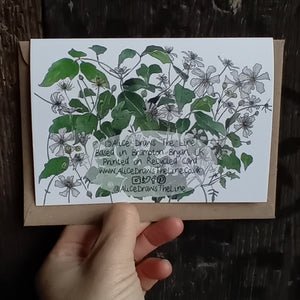 ©Alice Draws The Line
Based in Brampton Bryan, UK
Printed on Recycled Card
www.AliceDrawsTheLine.co.uk
@AliceDrawsTheLine